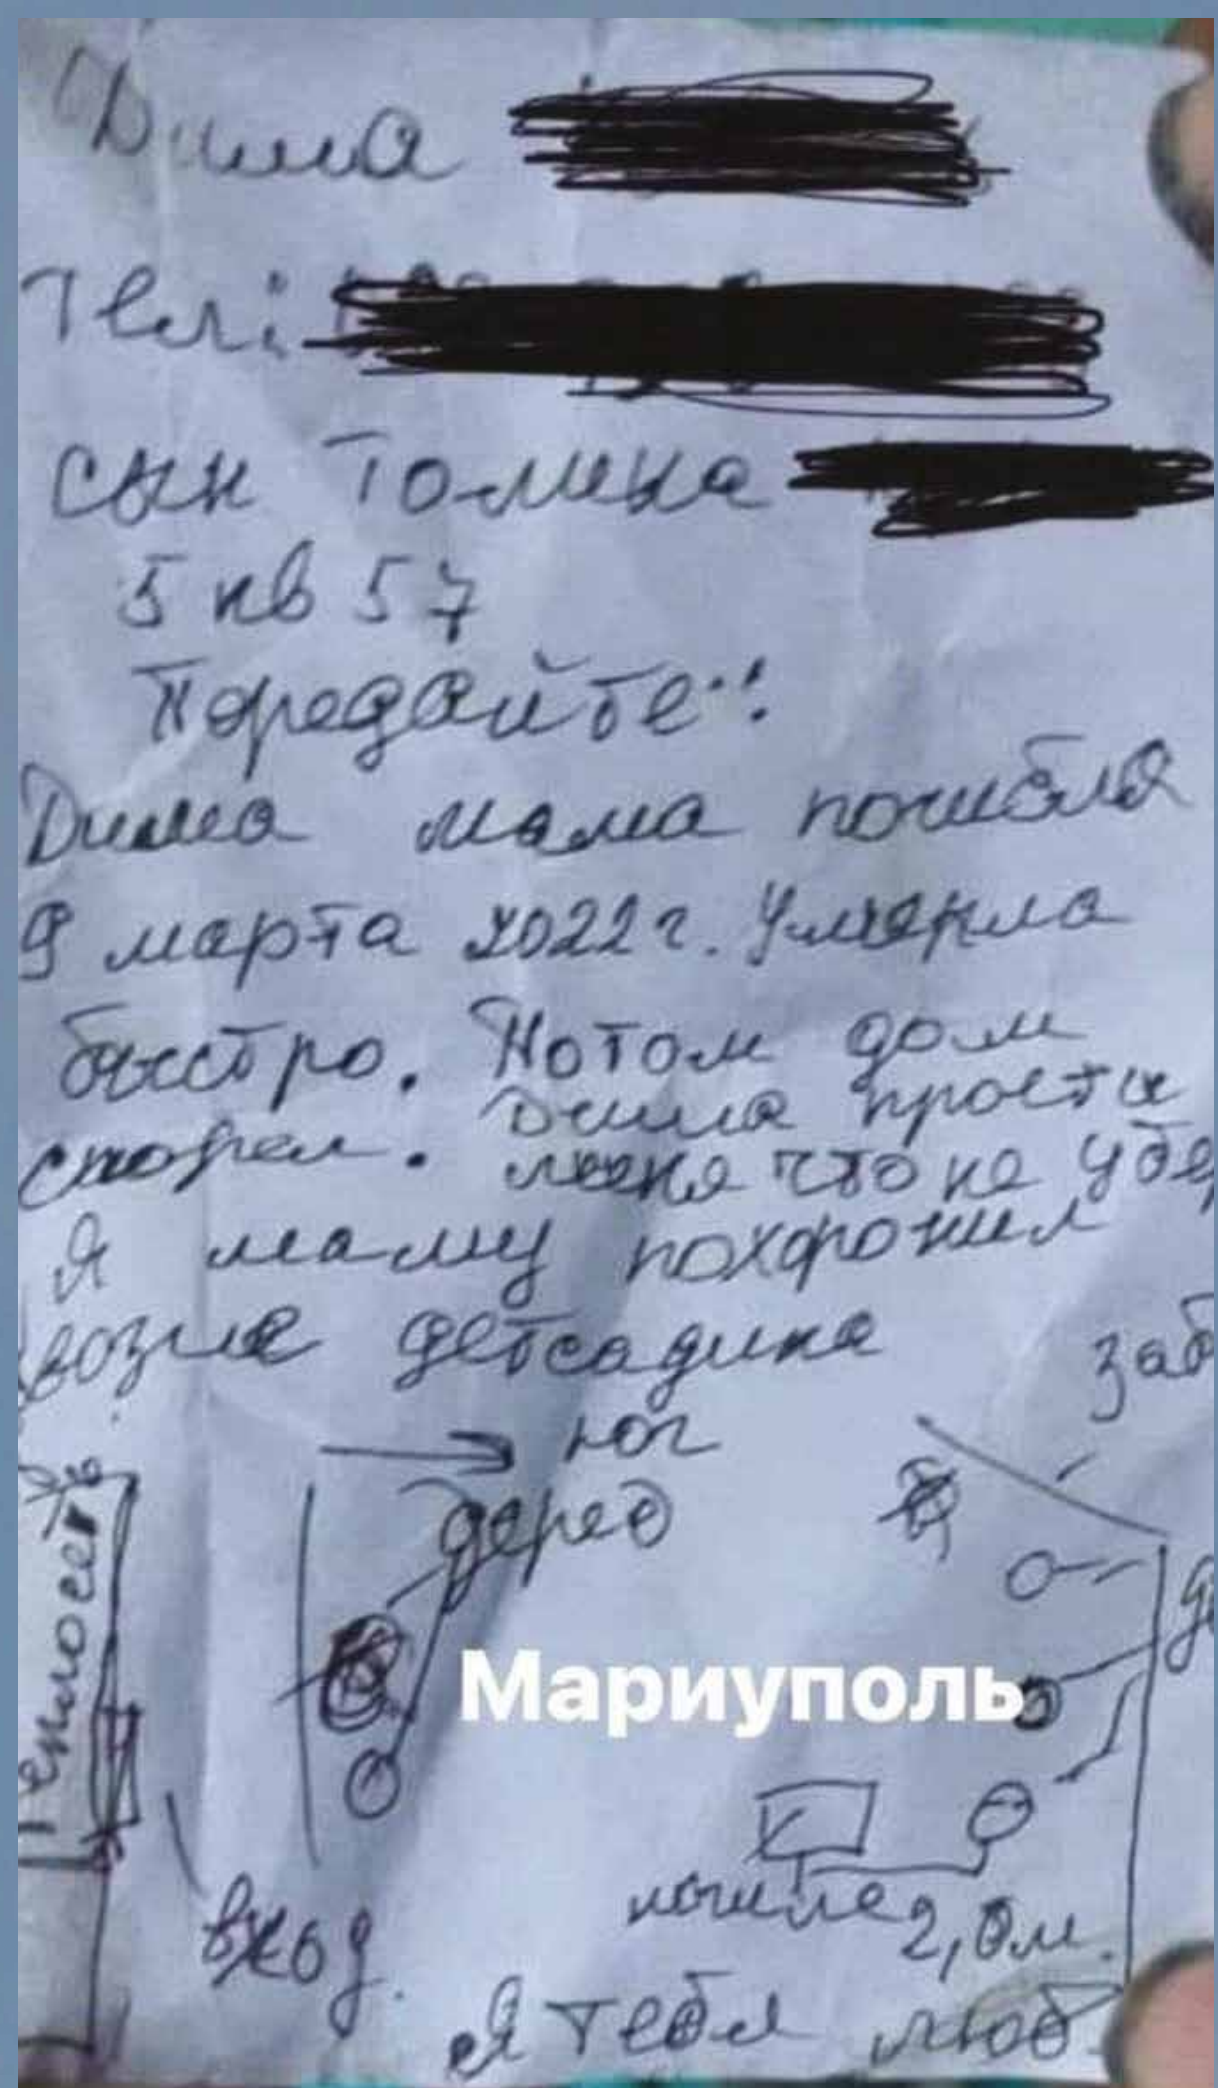 Дима
Тел:
сын Толика
5 кв 57
Передайте!
Дима мама погибла
9 марта 2022 г. Умерла
быстро. Потом дом
сгорел. Дима прости
меня что не убе
Я маму похоронил
возле детсадика
заб
юг
дерев
Теплосеть
Мариуполь
могила 2,0 м.
вход.
Я тебя люб